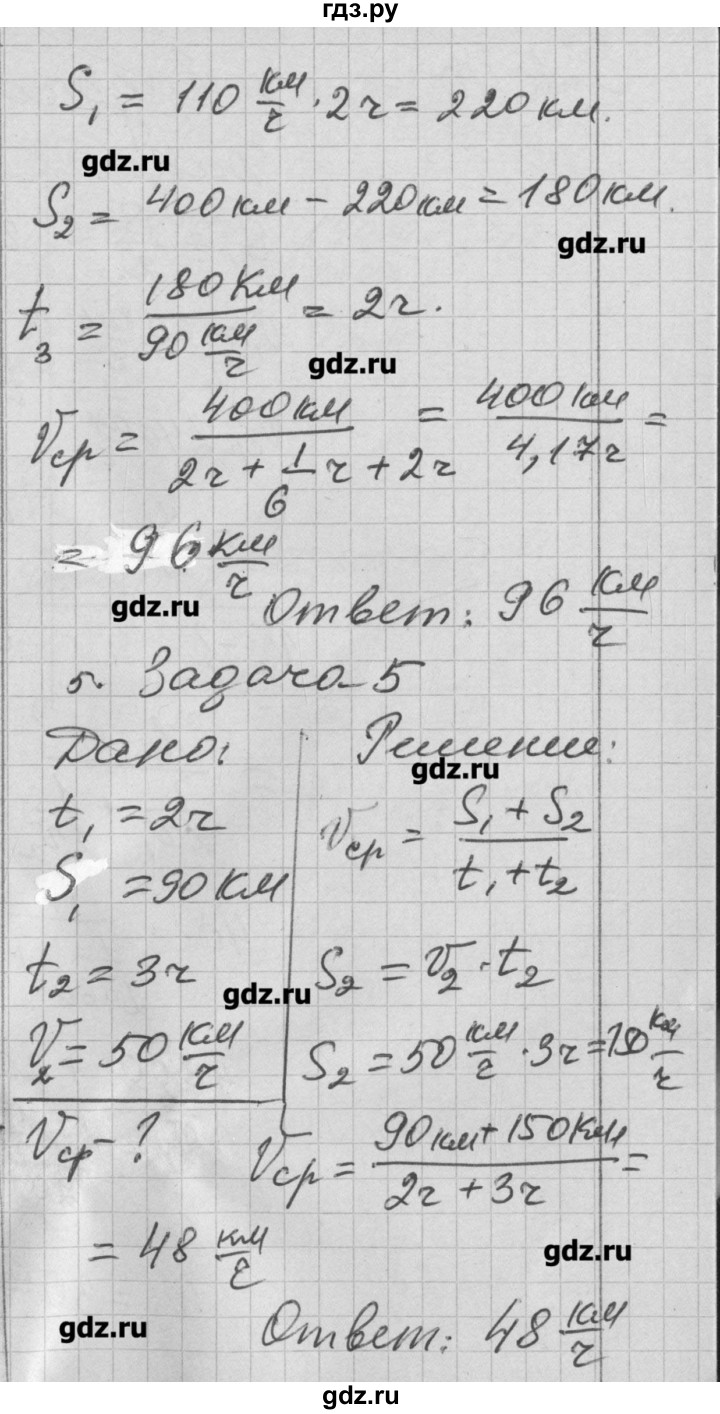 гдз.ру
S₁ = 110 км/ч · 2ч = 220 км.
gdz.ru
S₂ = 400 км − 220 км = 180 км.
gdz.ru
t₃ = 180 км / 90 км/ч = 2ч.
gdz.ru
Vср = 400 км / 2ч + 1/6 ч + 2ч = 400 км / 4,17ч =
= 96 км/ч
gdz.ru
Ответ: 96 км/ч
5. Задача 5
Дано: Решение:
gdz.ru
t₁ = 2ч
Vср = S₁ + S₂ / t₁ + t₂
S₁ = 90 км
t₂ = 3ч
S₂ = V₂ · t₂
gdz.ru
V₂ = 50 км/ч
S₂ = 50 км/ч · 3ч = 150 км/ч
Vср − ?
Vср = 90 км + 150 км / 2ч + 3ч =
= 48 км/ч
gdz.ru
gdz.ru
Ответ: 48 км/ч
gdz.ru